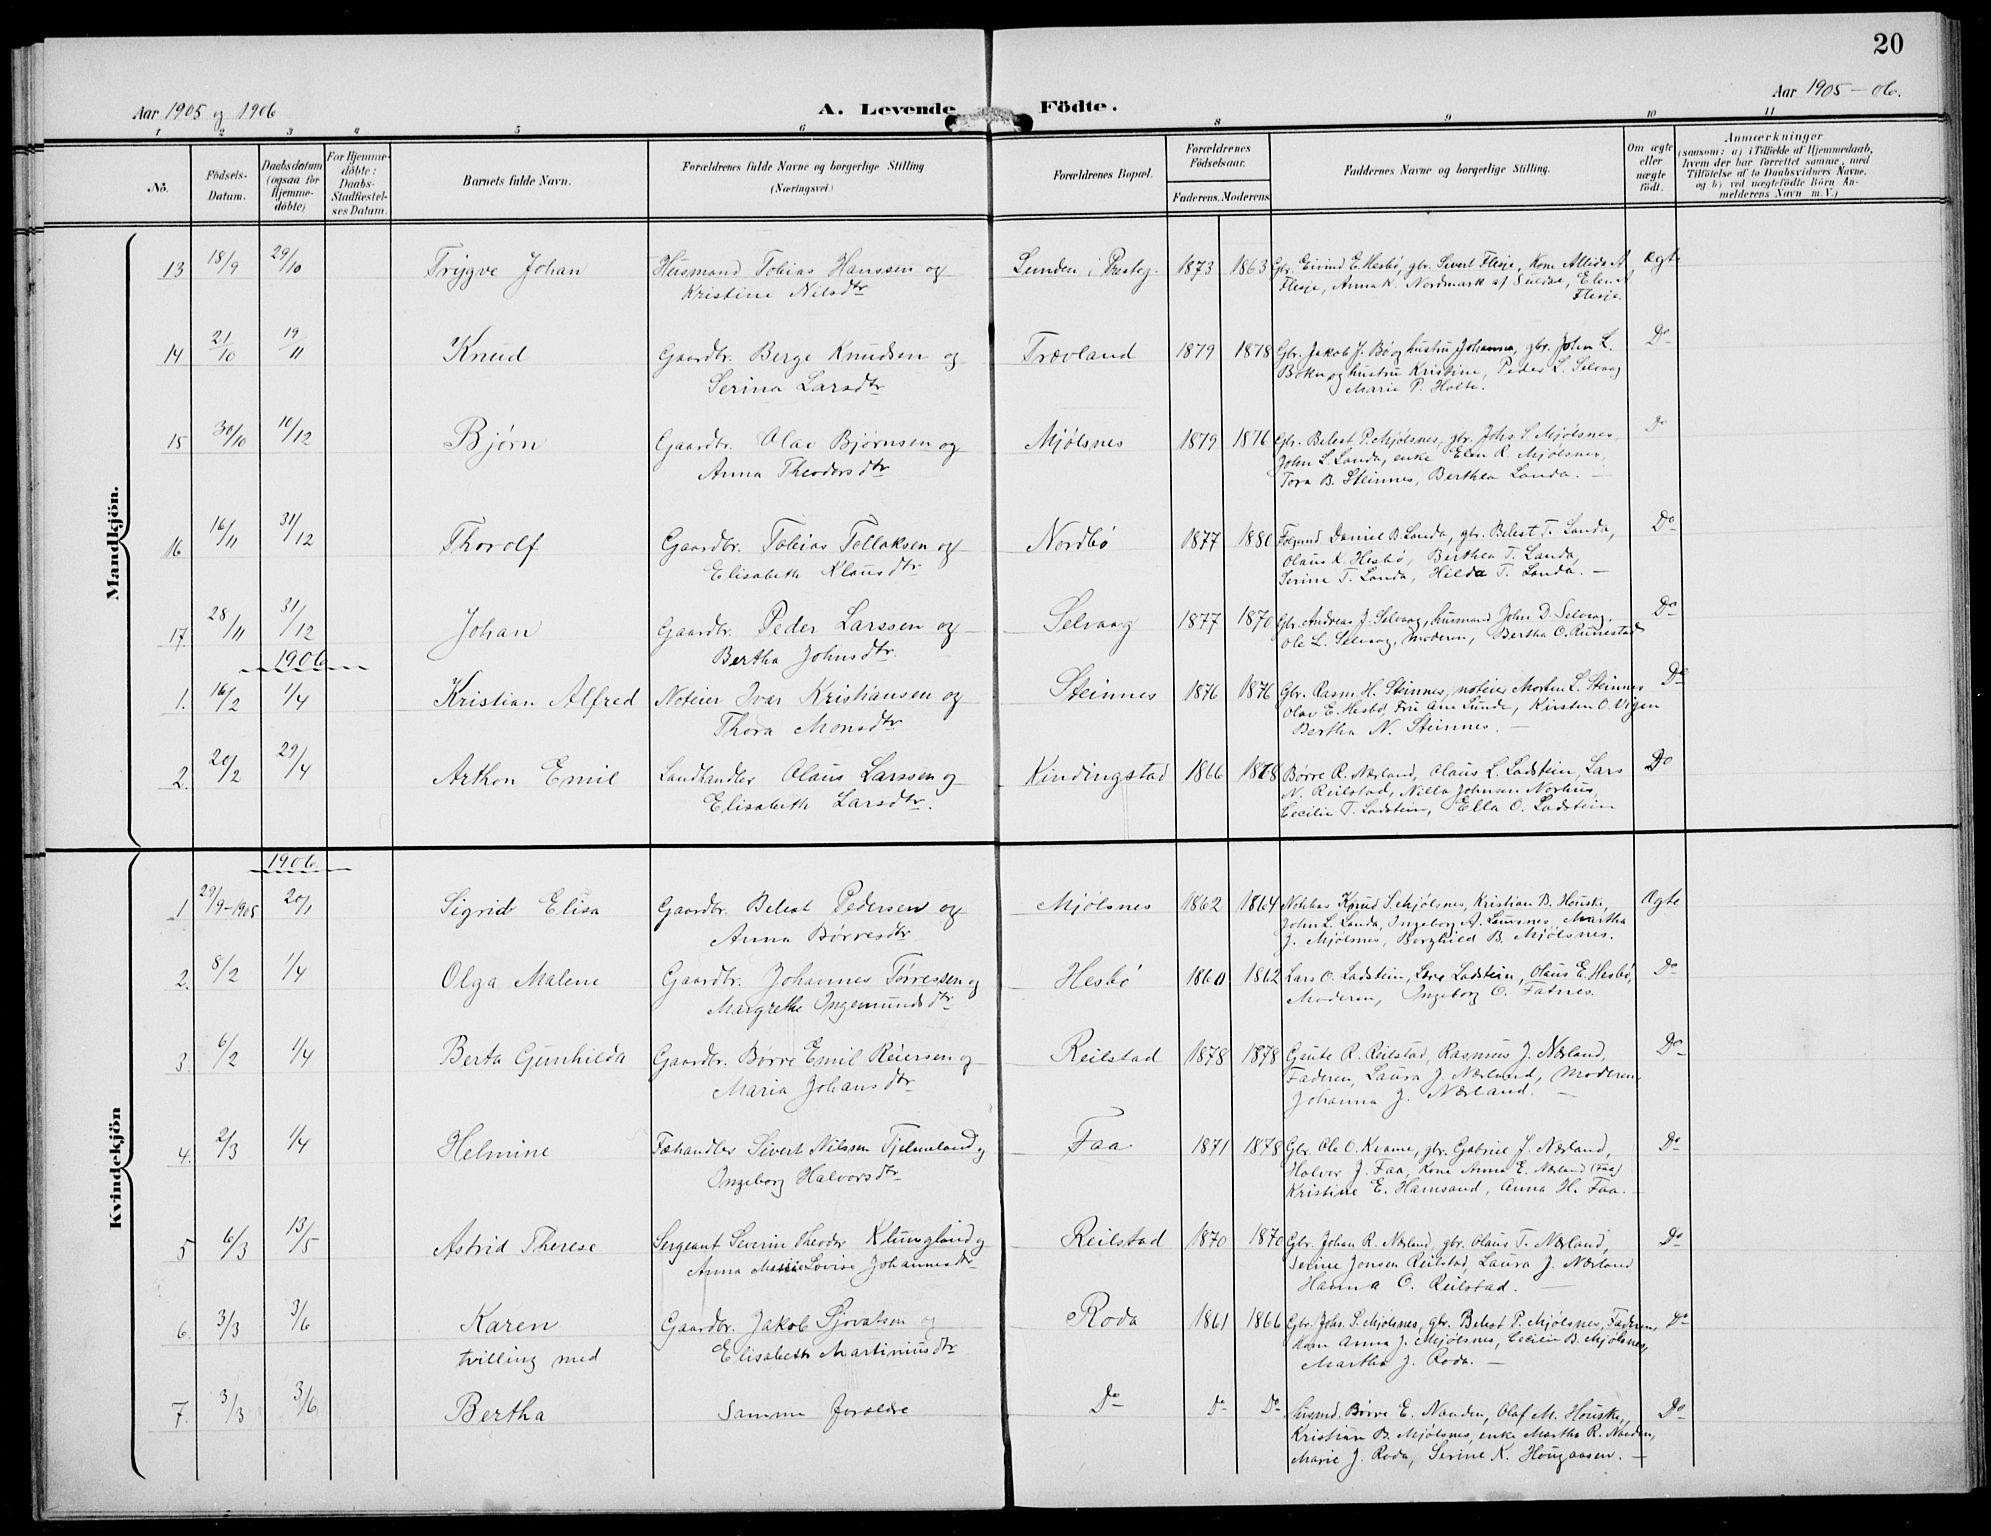 20
Aar 1905 og 1906
A. Levende Födte.
Aar 1905-06.
1 2 3 4 5 6 8 9 10 11
No.
Födsels-Datum.
Daabsdatum (ogsaa for Hjemme-döbte)
For Hjemme-döbte: Daabs-Stadfæstel-ses Datum.
Barnets fulde Navn.
Forældrenes fulde Navne og borgerlige Stilling
(Næringsvei.)
Forældrenes Bopæl.
Forældrenes Födselsaar.
Faderens. Moderens.
Faddernes Navne og borgerlige Stilling.
Om ægte eller uægte födt.
Anmærkninger
(saasom: a) i Tilfælde af Hjemmedaab,
hvem der har forrettet samme, med
Tilföielse af to Daabsvidners Navne,
og b) ved uægtefödte Börn An-
melderens Navn m. V.)
Mandkjön.
13 18/9 29/10 Trygve Johan Husmand Tobias Hanssen og Lunden i Presteg. 1873 1863 Gbr. Eivind E. Hesbø, gbr. Sivert Flesje, Kone
Kristine Nilsdtr Flesje, Anna K. Nordmark af Suldal, Elen A
Flesje. Ægte
14 21/10 19/11 Knud Gaardbr. Berge Knudsen og Trævland 1879 1878 Gbr. Jakob J. Bø og hustru Johanna, gbr. John L. Do
Serina Larsdtr Bokn og hustru Kristine, Peder L. Selvaag
Marie P. Holte.
15 30/10 10/12 Bjørn Gaardbr. Olav Bjørnsen og Mjølsnes 1879 1876 Gbr. Belest P. Mjølsnes, gbr. Johs S. Mjølsnes, Do
Anna Theodorsdtr John L. Landa, enke Elen R. Mjølsnes,
Tora B. Steinnes, Berthea Landa.
16 16/11 31/12 Thorolf Gaardbr. Tobias Tellaksen og Nordbø 1877 1880 Daniel B. Landa, gbr. Belest T. Landa, Do
Elisabeth Klausdtr Olaus K. Hesbø, Berthea T. Landa,
Serine T. Landa, Hilda T. Landa.
17. 28/11 31/12 Johan Gaardbr. Peder Larssen og Selvaag 1877 1870 Gbr. Andreas J. Selvaag, husmand John D. Selvaag, Do
Bertha Johnsdtr. Ole L. Selvaag, Moderen, Bertha O. Runestad
1906
1. 16/2 1/4 Kristian Alfred Noteier Ivar Kristiansen og Steinnes 1876 1876 Gbr. Rasm. H. Steinnes, noteier Morten L. Steinnes Do
Thora Monsdtr Olav E. Hesbø, Fru Ane Lunde, Kirsten O. Vigen
Bertha N. Steinnes.
2. 20/2 29/4 Arthon Emil Landhandler Olaus Larssen og Kindingstad 1866 1878 Børre R. Nærland, Olaus L. Ladstein, Lars Do
Elisabeth Larsdtr. N. Reilstad, Nilla Johnsen Norhus,
Cecilie T. Ladstein, Ella O. Ladstein
Kvindekjön
1906
1 29/9-1905 20/1 Sigrid Elisa Gaardbr. Belest Pedersen og Mjølsnes 1862 1864 Knud S. Mjølsnes, Kristian B. Houske, Ægte
Anna Børresdtr. John L. Landa, Ingeborg A. Lausnes, Martha
J. Mjølsnes, Borghild B. Mjølsnes.
2. 8/2 1/4 Olga Malene Gaardbr. Johannes Tørressen og Hesbø 1860 1862 Lars O. Ladstein, Lave Ladstein, Olaus E. Hesbø, Do
Margrethe Ingemundsdtr Moderen, Ingeborg O. Fatnes.
3. 6/2 1/4 Berta Gunhilda Gaardbr. Børre Emil Reiersen og Reilstad 1878 1878 Gaute R. Reilstad, Rasmus J. Nærland, Do
Maria Johansdtr Faderen, Laura J. Nærland, Moderen,
Johanna J. Nærland.
4. 2/3 1/4 Helmine Fæhandler Sivert Nilssen Tjelmeland og Faa 1871 1878 Gbr. Ole O. Kvame, gbr. Gabriel J. Nærland, Do
Ingeborg Halvorsdtr Halvor J. Faa, Kone Anna E. Nærland (Faa)
Kristine E. Hamsand, Anna H. Faa.
5 6/3 13/5 Astrid Therese Sergeant Severin Theodor Klungland og Reilstad 1870 1870 Gbr. Johan R. Nærland, gbr. Olaus T. Nærland, Do
Anna Lovise Johannesdtr Serine Jonsen Reilstad, Laura J. Nærland
Hanna O. Reilstad.
6. 3/3 3/6 Karen Gaardbr. Jakob Sjovatsen og Roda 1861 1866 Gbr. Johs. S. Mjølsnes, gbr. Belest P. Mjølsnes, Faderen, Do
tvilling med Elisabeth Martiniusdtr Kone Anna J. Mjølsnes, Cecilie B. Mjølsnes,
Martha J. Roda.
7. 3/3 3/6 Bertha Samme forældre Do Do Do Husmd. Børre E. Nånden, Olaf M. Houske, Do
Kristian B. Mjølsnes, enke Martha R. Nånden,
Marie J. Roda, Serine K. Hougaasen.